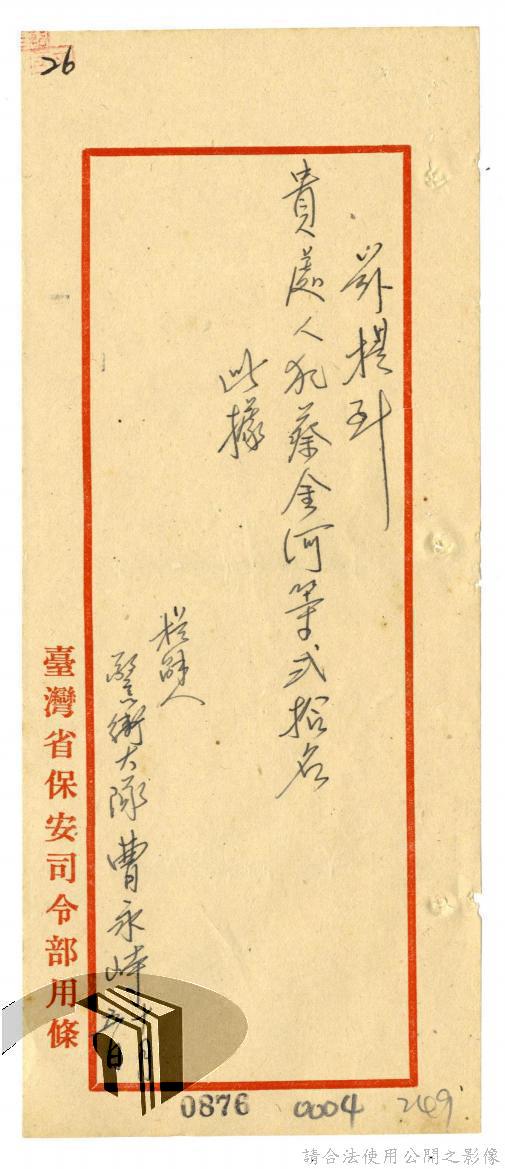 26
茲提到
貴處人犯蔡金河等弍拾名
此據
提解人
警衛大隊 曹永崎 十月
五日
臺灣省保安司令部用條
0876 0004 249
請合法使用公開之影像